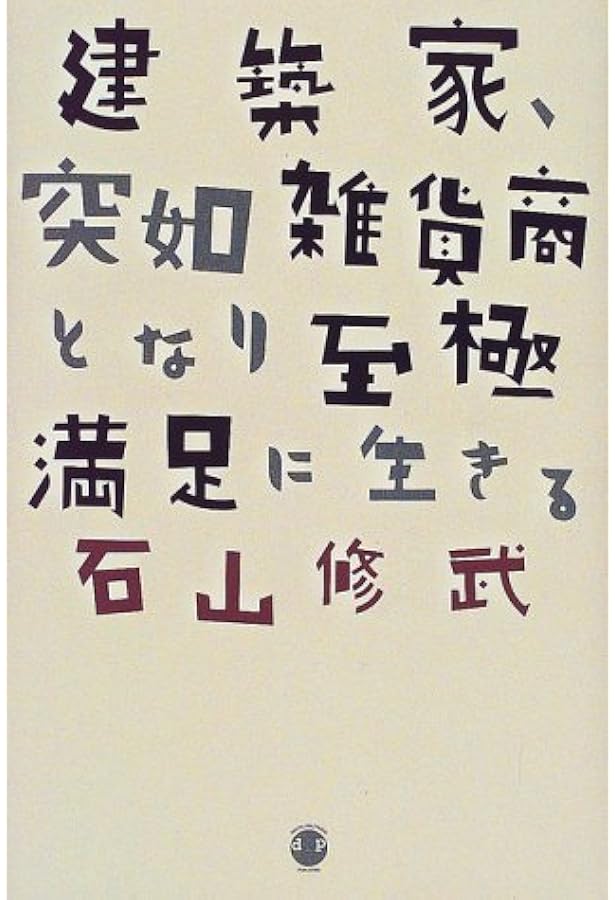 建築家、
突如雑貨商
となり至極
満足に生きる
石山修武